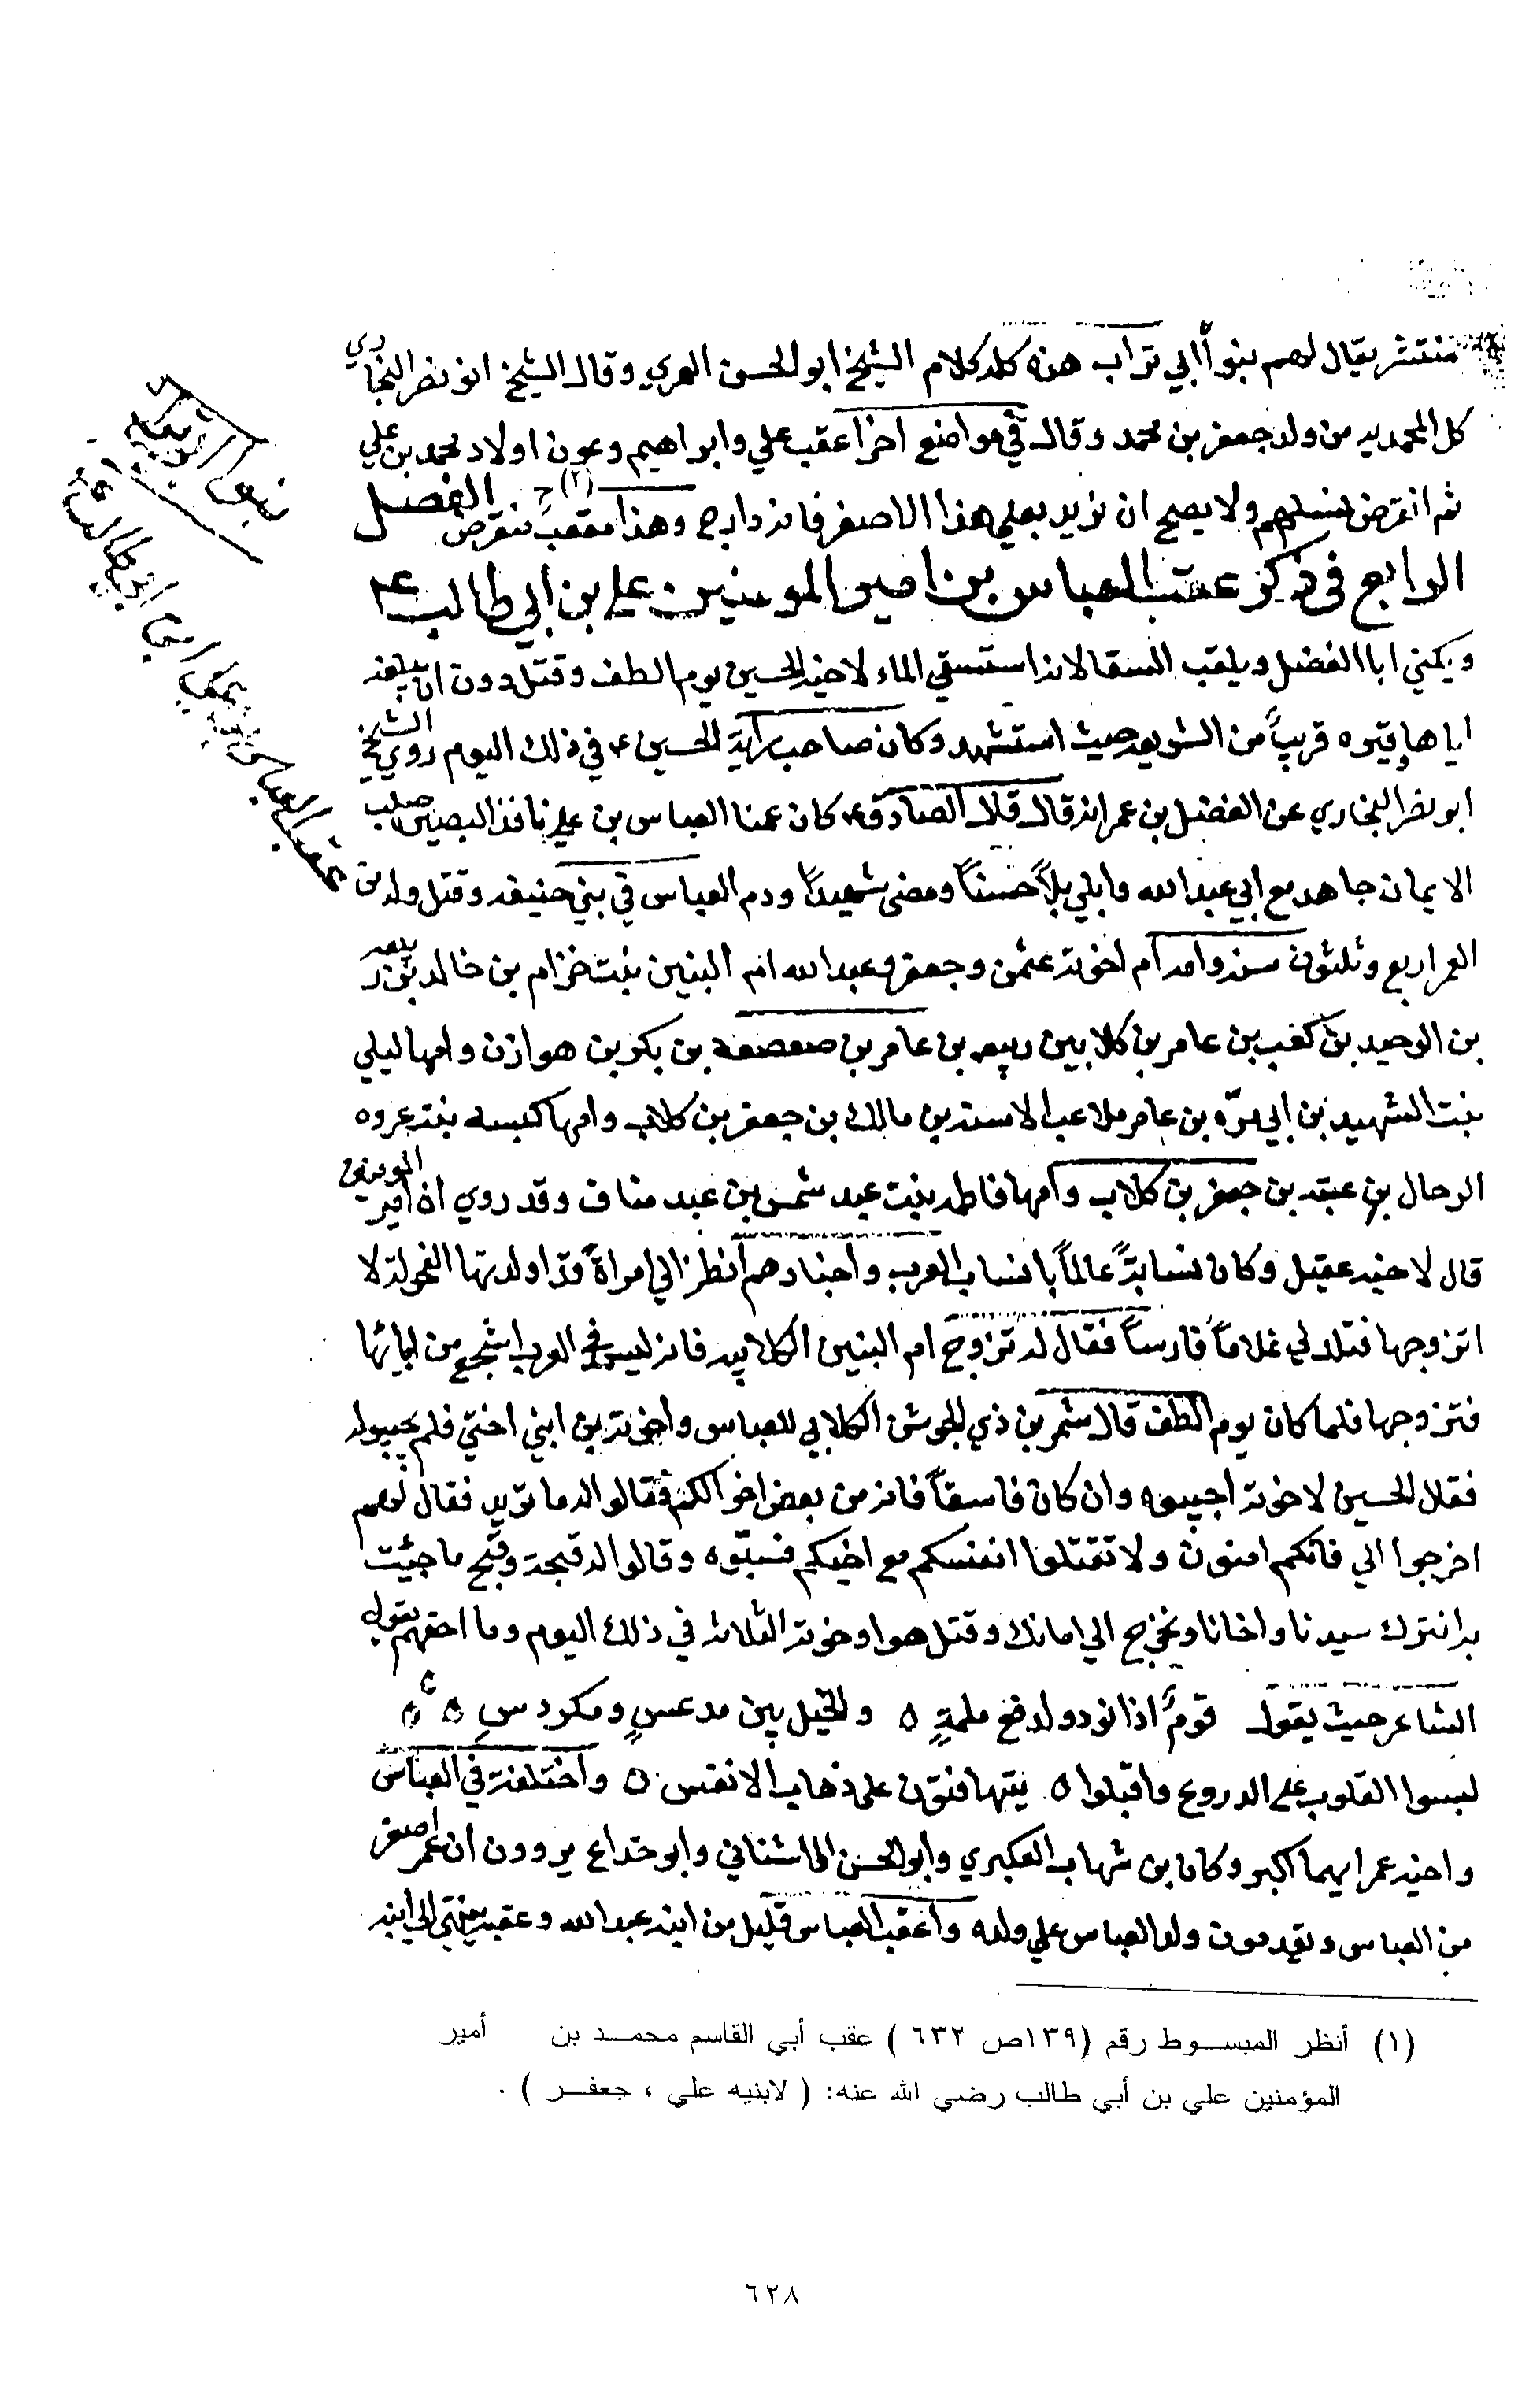 منتشر يقال لهم بنوا ابي تراب هذه كله كلام الشيخ ابو الحسن العمري وقال الشيخ ابو نصر البخاري
كل المحمديه من ولد جعفر بن محمد وقال في مواضع اخر اعقب علي وابراهيم وعون اولاد محمد بن علي
ثم انقرض نسلهم ولا يصح ان نريد بعلي هذا الاصغر فانه دارج وهذا معقب منقرض (٢) الفصل
الرابع في ذكر عقب العباس بن امير المومنين علي بن ابي طالب ع
ويكني ابا الفضل ويلقب السقا لانه استسقي الماء لاخيه الحسين يوم الطف وقتل دون ان يبلغه
اياها وقبره قريباً من الشريعه حيث استشهد وكان صاحب راية الحسين ع في ذلك اليوم روي الشيخ
ابو نصر البخاري عن المفضل بن عمر انه قال قال الصادق ع كان عمنا العباس بن علي نافذ البصيره صلب
الايمان جاهد مع ابي عبد الله وابلي بلاً حسناً ومضى شهيداً ودم العباس في بني حنيفه وقتل وله من
العمر اربع وثلثون سنه وامه ام اخوته عثمن وجعفر وعبد الله ام البنين بنت حزام بن خالد بن ربيعه
بن الوحيد بن كعب بن عامر بن كلاب بن ربيعه بن عامر بن صعصعه بن بكر بن هوازن وامها ليلي
بنت الشهيد بن ابي برّه بن عامر ملاعب الاسنه بن مالك بن جعفر بن كلاب وامها كبسه بنت عروه
الرحال بن عتبه بن جعفر بن كلاب وامها فاطمه بنت عبد شمس بن عبد مناف وقد روي ان امير المومنين
قال لاخيه عقيل وكان نسابةً عالماً بانساب العرب واخبارهم انظر الي امراةً قد اولدتها الفحولة لا
اتزوجها فتلد لي غلاماً فارساً فقال له تزوج ام البنين الكلابيه فانه ليس في العرب اشجع من ابائها
فتزوجها فلما كان يوم الطف قال شمر بن ذي الجوش الكلابي للعباس واخوته اين ابني اختي فلم يجيبوله
فقال الحسين لاخوته اجيبوه وان كان فاسقاً فانه من بعض اخوالكم فقالوا له ما تريد فقال لهم
اخرجوا الي فانكم امنون ولا تقتلوا انفسكم مع اخيكم فسبّوه وقالوا له قبحت وقبح ما جئت
به انترك سيدنا واخانا ونخرج الي امانك وقتل هو واخوته الثلاثه في ذلك اليوم وما احقهم بقول
الشاعر حيث يقول قومٌ اذا نودو لدفع ملمةٍ ه والخيل بين مدعسٍ ومكردسِ ه ه
لبسوا القلوب علي الدروع واقبلوا ه يتهافتون علي ذهاب الانفس ه واختلفته في العباس
واخيه عمر ايهما اكبر وكان بن شهاب العكبري وابو الحسن الاشناني وابو خداع يروون ان عمر اصغر
من العباس ويقدمون ولد العباس علي ولده واعقب العباس قليل من ابنه عبد الله وعقبه ينتهي الي ابنه
(١) أنظر المبسوط رقم (١٣٩ص ٦٣٢ ) عقب أبي القاسم محمد بن أمير
المؤمنين علي بن أبي طالب رضي الله عنه: ( لابنيه علي ، جعفر ) .
٦٢٨